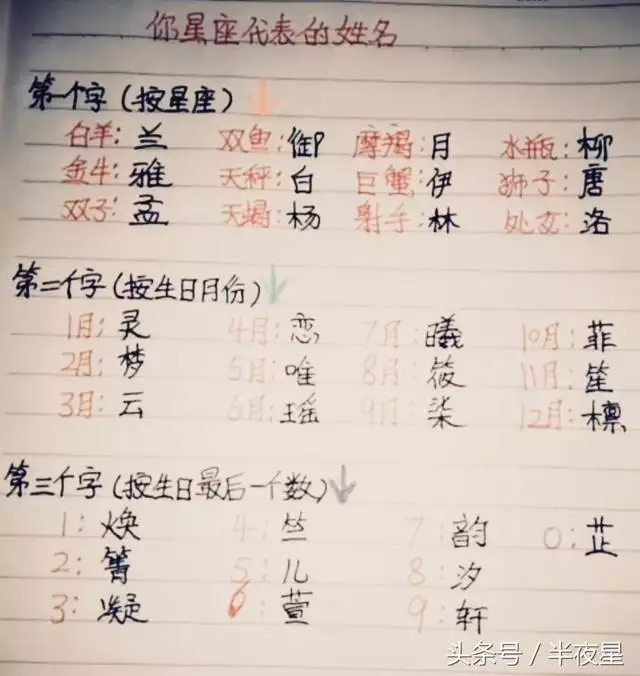 你星座代表的姓名
第一个字（按星座）↓
白羊：兰 双鱼：御 摩羯：月 水瓶：柳
金牛：雅 天秤：白 巨蟹：伊 狮子：唐
双子：孟 天蝎：杨 射手：林 处女：洛
第二个字（按生日月份）↓
1月：灵 4月：恋 7月：曦 10月：菲
2月：梦 5月：唯 8月：筱 11月：笙
3月：云 6月：瑶 9月：柒 12月：檩
第三个字（按生日最后一个数）↓
1：焕 4：竺 7：韵 0：芷
2：箐 5：儿 8：汐
3：凝 6：萱 9：轩
头条号 / 半夜星